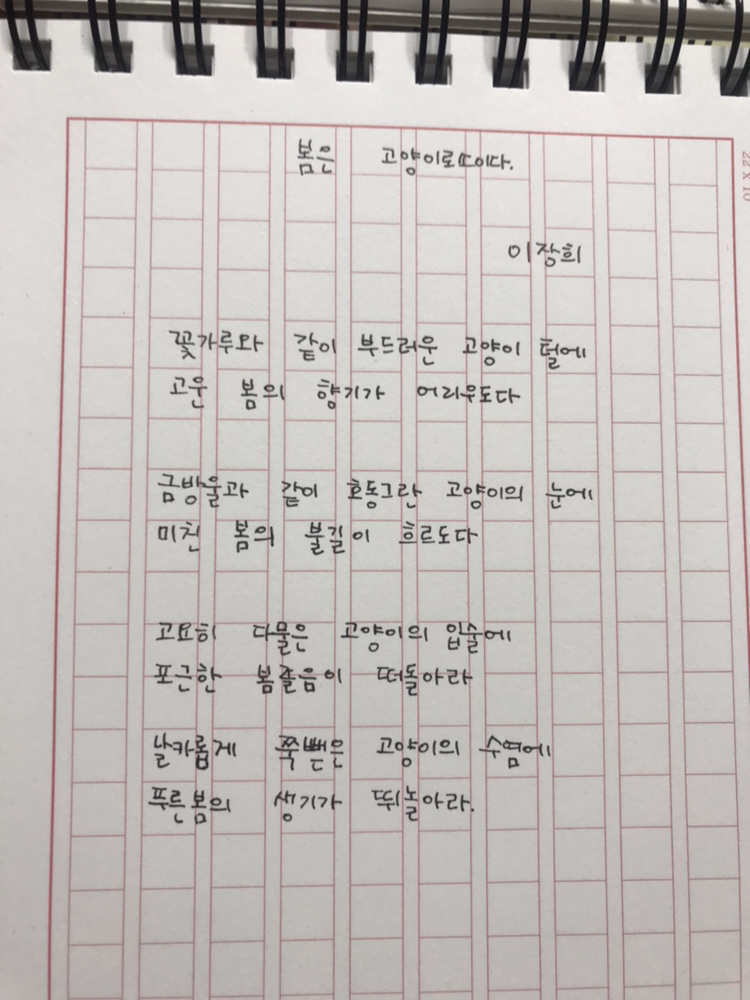 봄은 고양이로따이다.
이장희
꽃가루와 같이 부드러운 고양이 털에
고운 봄의 향기가 어리우도다
금방울과 같이 호동그란 고양이의 눈에
미친 봄의 불길이 흐르도다
고요히 다물은 고양이의 입술에
포근한 봄졸음이 떠돌아라
날카롭게 쭉뻗은 고양이의 수염에
푸른봄의 생기가 뛰놀아라.
22 X 10